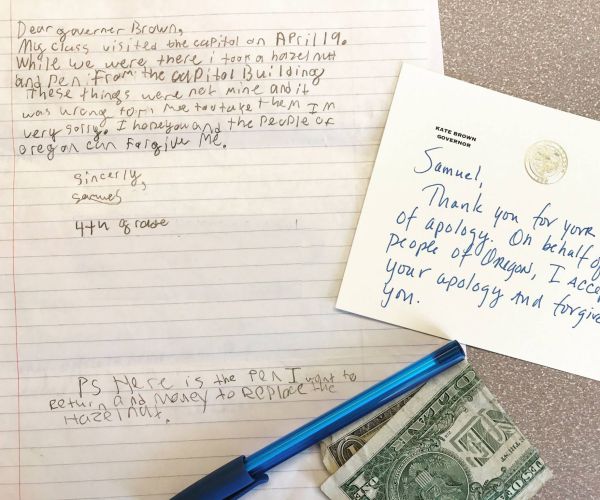 Dear governer Brown,
My class visited the capitol on April 19.
While we were there i took a hazel nut
and Pen from the capitol Building
These things were not mine and it
was wrong for me to take them I'm
very sorry. I hope you and the people of
oregon can forgive me.
sincerly,
samuel
4th grade
PS Here is the pen I want to
return and money to replace the
Hazelnut.
KATE BROWN
GOVERNOR
Samuel,
Thank you for your
of apology. On behalf of
people of Oregon, I acce
your apology and forgive
you.
ONE